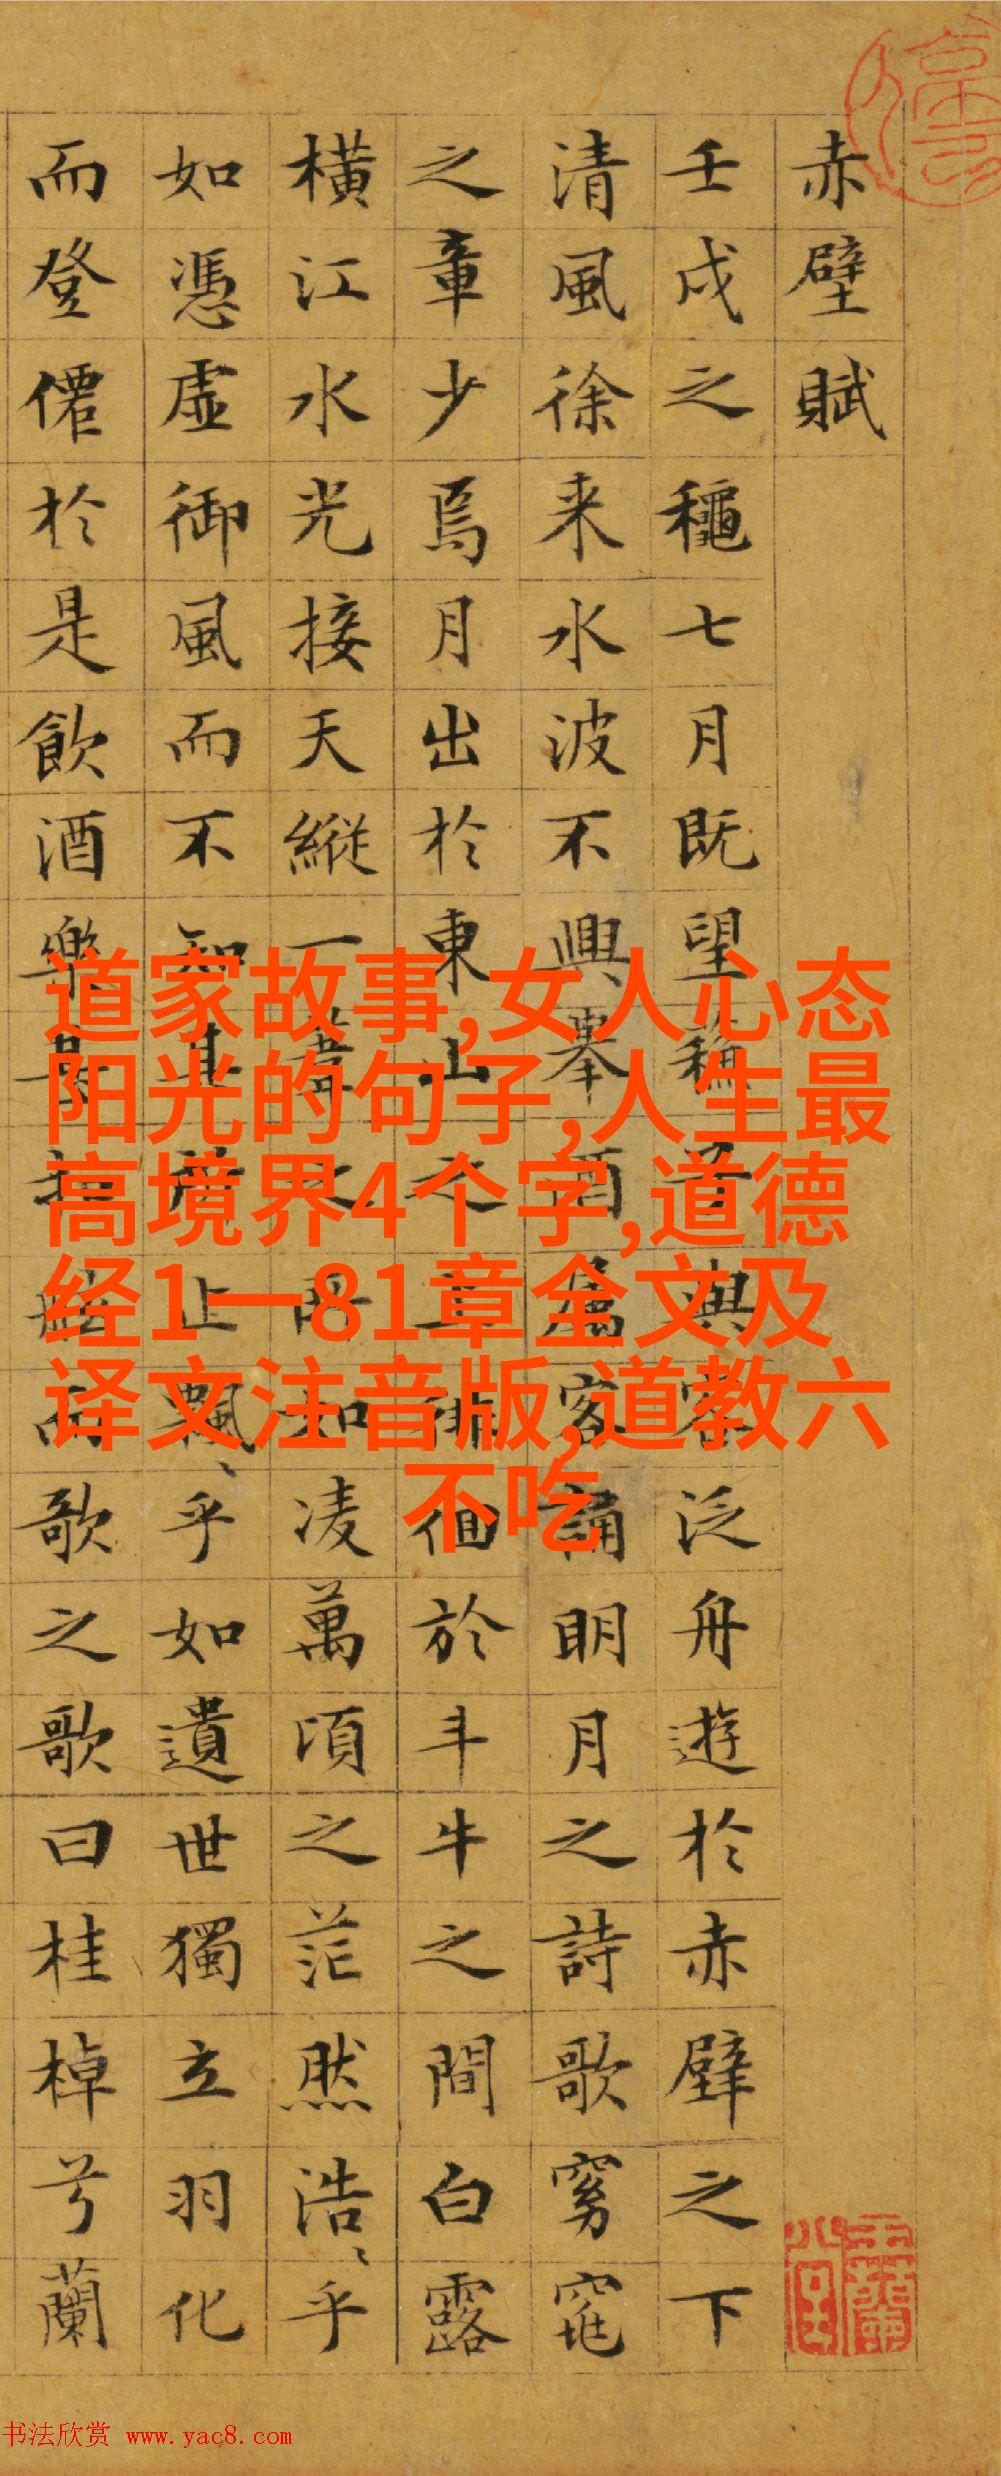 赤壁賦
壬戌之穐七月既望蘓子與客泛舟遊於赤壁之下
清風徐来水波不興舉酒屬客誦明月之詩歌窈窕
之章少焉月出於東山之上徘徊於斗牛之間白露
橫江水光接天縱一葦之所如凌萬頃之茫然浩〻乎
如憑虛御風而不知其所止飄〻乎如遺世獨立羽化
而登僊於是飲酒樂甚扣舷而歌之歌曰桂棹兮蘭
道家故事,女人心态
阳光的句子,人生最
高境界4个字,道德
经1一81章全文及
译文注音版,道教六
不吃
书法欣赏 www.yac8.com